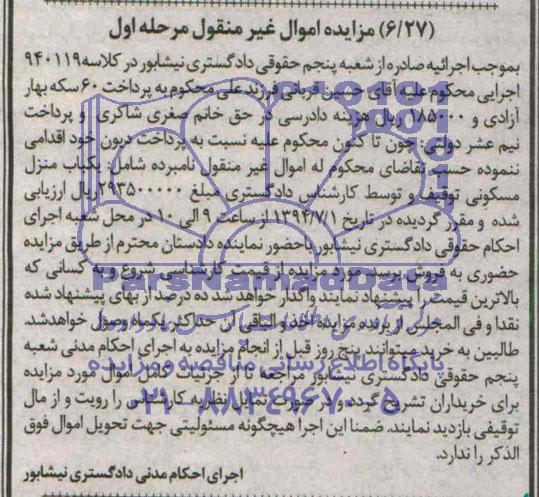 (۶/۲۷) مزایده اموال غیر منقول مرحله اول
بموجب اجرائیه صادره از شعبه پنجم حقوقی دادگستری نیشابور در کلاسه ۹۴۰۱۱۹
اجرایی محکوم علیه آقای حسین قربانی فرزند علی محکوم به پرداخت ۶۰ سکه بهار
آزادی و ۱۸۵۰۰۰۰ ریال هزینه دادرسی در حق خانم صغری شاکری و پرداخت
نیم عشر دولتی، چون تا کنون محکوم علیه نسبت به پرداخت دیون خود اقدامی
ننموده حسب تقاضای محکوم له اموال غیر منقول نامبرده شامل: یکباب منزل
مسکونی توقیف و توسط کارشناس دادگستری مبلغ ۲۹۳۵۰۰۰۰۰ ریال ارزیابی
شده و مقرر گردیده در تاریخ ۱۳۹۴/۷/۱ از ساعت ۹ الی ۱۰ در محل شعبه اجرای
احکام حقوقی دادگستری نیشابور باحضور نماینده دادستان محترم از طریق مزایده
حضوری به فروش برسد. مورد مزایده از قیمت کارشناسی شروع و به کسانی که
بالاترین قیمت را پیشنهاد نمایند واگذار خواهد شد ده درصد از بهای پیشنهاد شده
نقدا و فی المجلس از برنده مزایده اخذ و الباقی آن حداکثر یکماه وصول خواهدشد.
طالبین به خرید میتوانند پنج روز قبل از انجام مزایده به اجرای احکام مدنی شعبه
پنجم حقوقی دادگستری نیشابور مراجعه تا از جزئیات کامل اموال مورد مزایده
برای خریداران تشریح گردد و در صورت تمایل نظریه کارشناسی را رویت و از مال
توقیفی بازدید نمایند. ضمنا این اجرا هیچگونه مسئولیتی جهت تحویل اموال فوق
الذکر را ندارد.
اجرای احکام مدنی دادگستری نیشابور
ParsNamadData
پایگاه اطلاع رسانی مناقصه و مزایده
۰۲۱-۸۸۳۴۹۶۷۰-۵